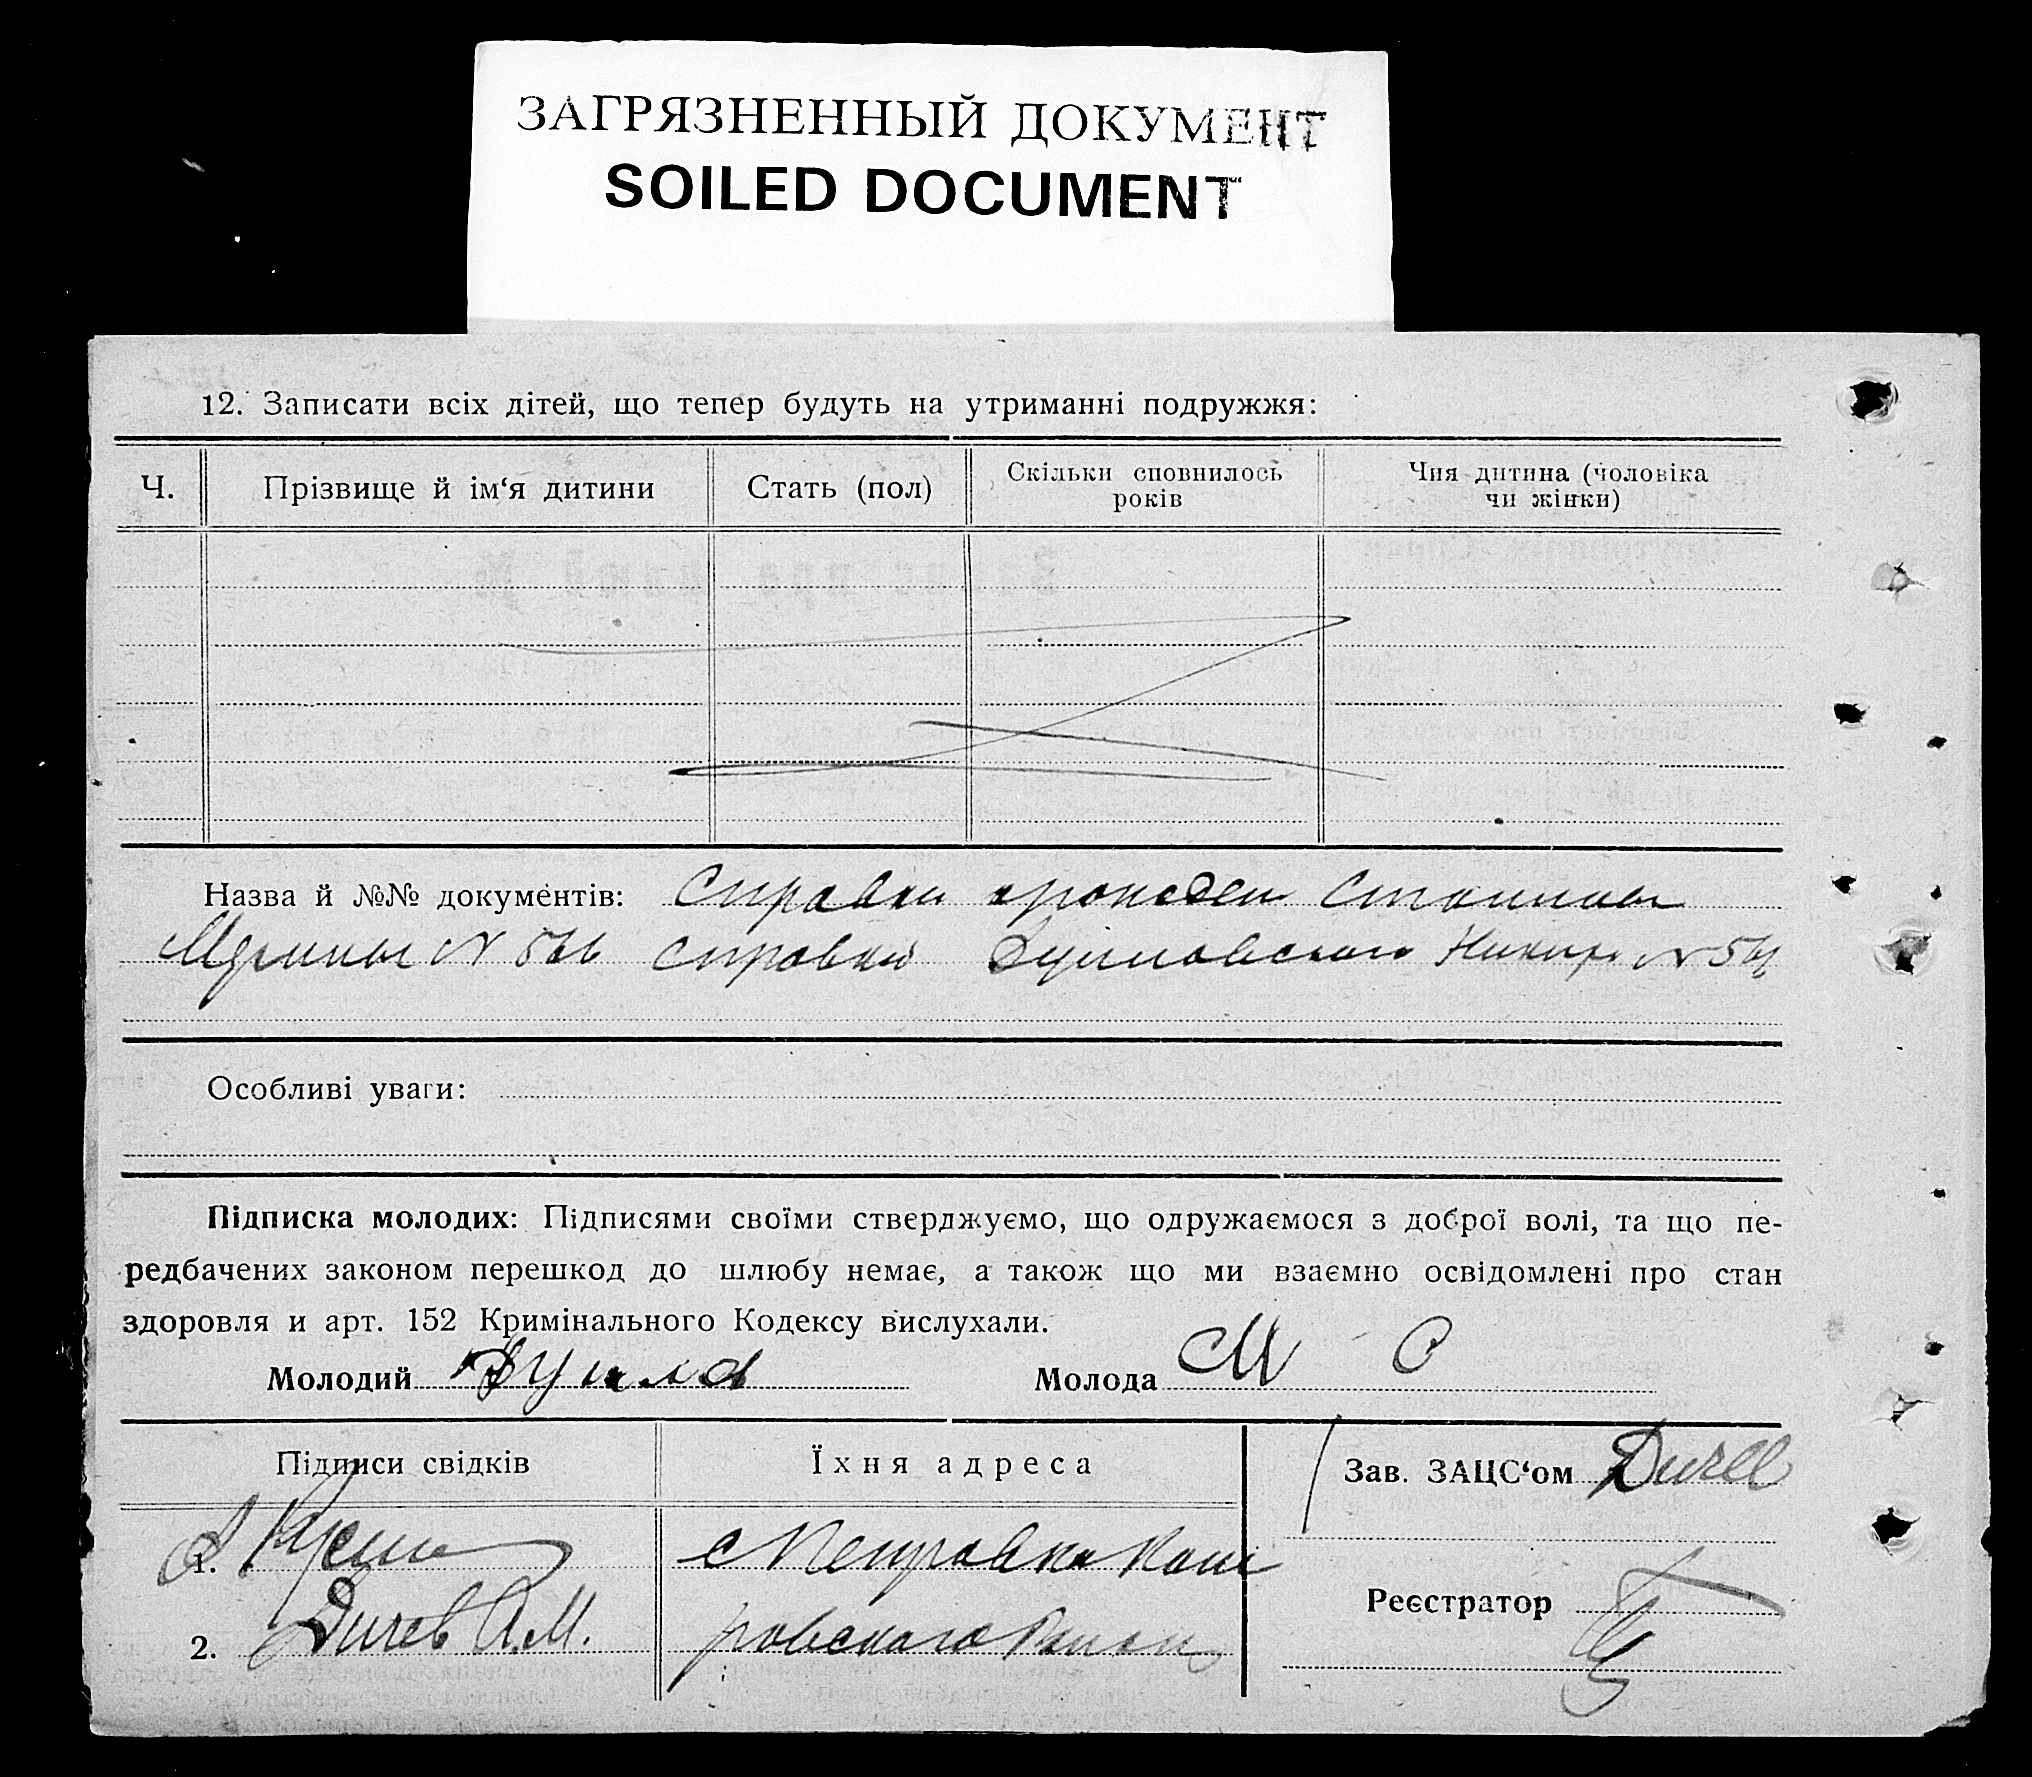 ЗАГРЯЗНЕННЫЙ ДОКУМЕНТ
SOILED DOCUMENT
12. Записати всіх дітей, що тепер будуть на утриманні подружжя:
Ч. Прізвище й ім‘я дитини Стать (пол) Скільки сповнилось років Чия дитина (чоловіка чи жінки)
Назва й №№ документів: Справки
N справки N
Особливі уваги:
Підписка молодих: Підписями своїми стверджуємо, що одружаємося з доброї волі, та що пе-
редбачених законом перешкод до шлюбу немає, а також що ми взаємно освідомлені про стан
здоровля и арт. 152 Кримінального Кодексу вислухали.
Молодий Молода М С
Підписи свідків Їхня адреса Зав. ЗАЦС‘ом
1. с Петровка Ком
Реєстратор
2. Дичев А.М. ровского